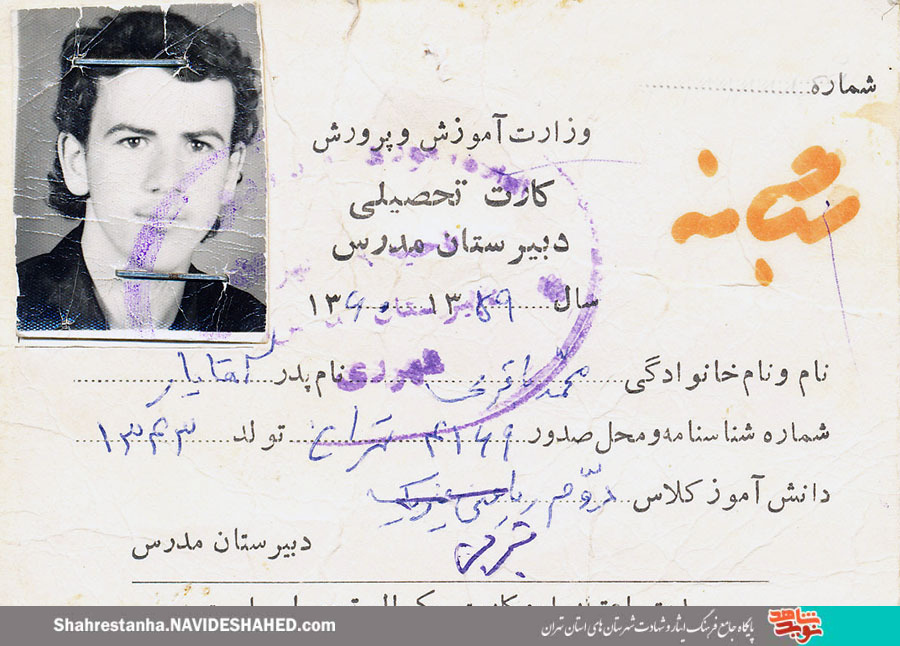 شماره
وزارت آموزش و پرورش
کارت تحصیلی
شبانه
دبیرستان مدرس
سال ۱۳۵۹ ۱۳۶۰
نام و نام خانوادگی محمد باقر نام پدر آقایار
شماره شناسنامه و محل صدور ۴۱۶۹ تهران تولد ۱۳۴۳
دانش آموز کلاس دوم ریاضی فیزیک
تجربی
دبیرستان مدرس
Shahrestanha.NAVIDESHAHED.com
پایگاه جامع فرهنگ ایثار و شهادت شهرستان های استان تهران
نوید شاهد